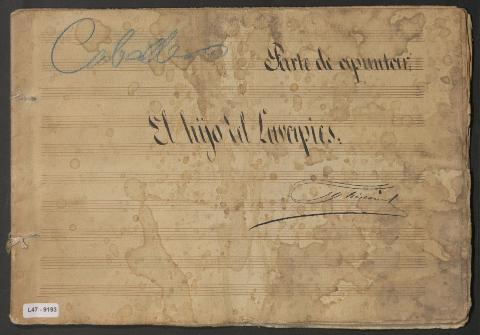 Caballero
Parte de apuntar.
El hijo del Lavapies.
L47 - 9193